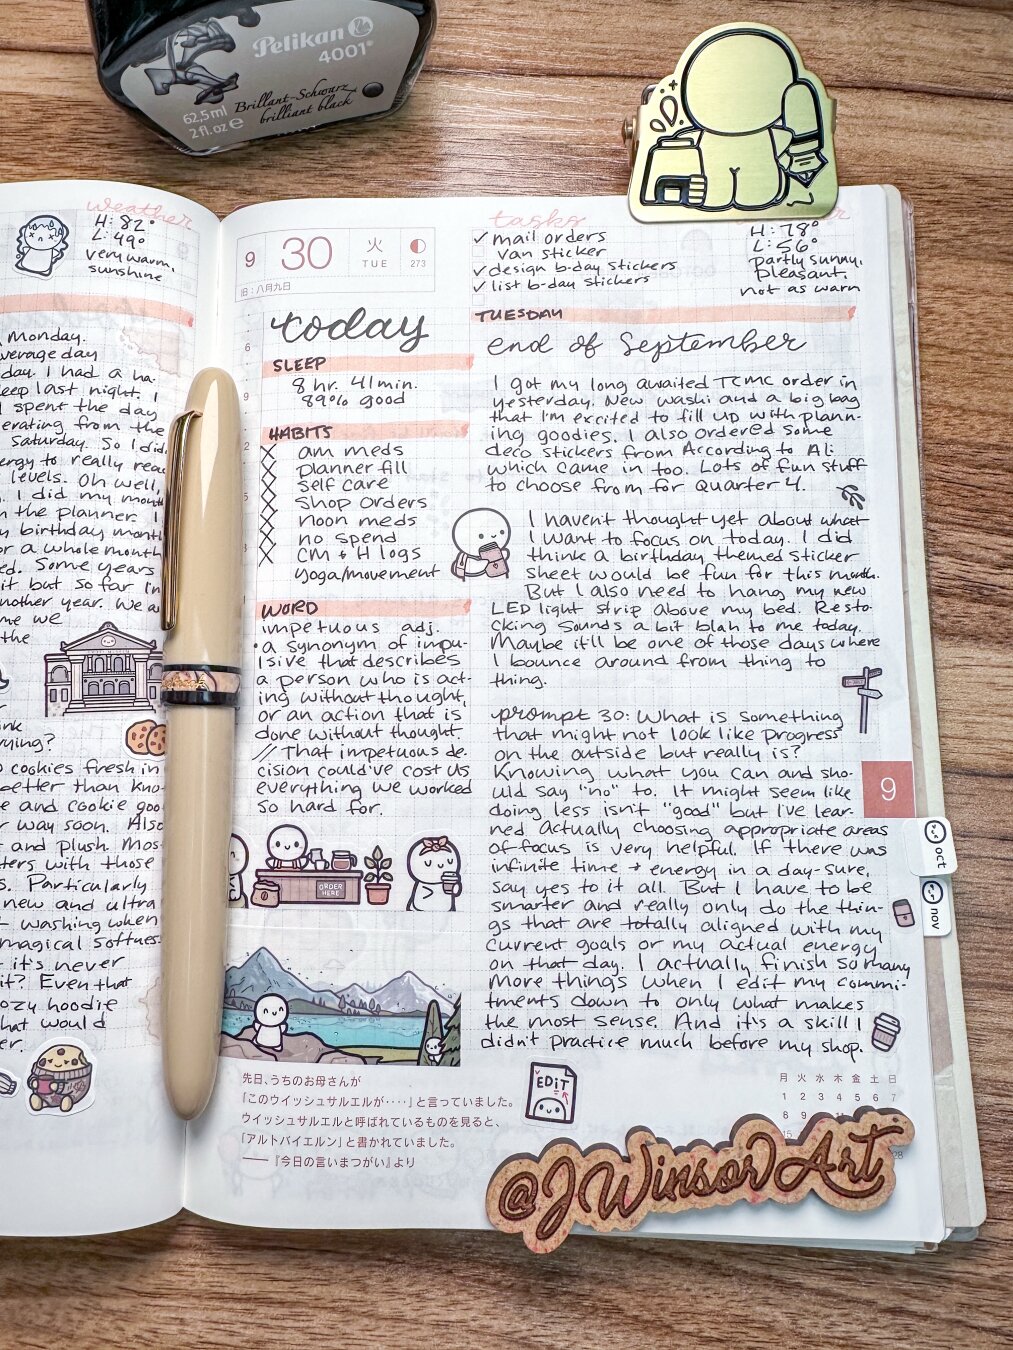 Pelikan
4001®
Brillant-Schwarz
brilliant black
62,5ml
2 fl.oz e
weather
H: 82°
L: 49°
very warm,
sunshine
Monday.
verage day
day. I had a ha-
eep last night. I
I spent the day
erating from the
Saturday. So I did
ergy to really rea
levels. Oh well,
I did my month
n the planner. I
y birthday month
or a whole month
ed. Some years
it but so far in
nother year. We a
me we
the
ink
rying?
cookies fresh in
better than kno
e and cookie goo
r way soon. Also
t and plush. Mos
ters with those
s. Particularly
new and ultra
t washing when
magical softnes
it's never
it? Even that
ozy hoodie
hat would
er.
9
30
火
TUE
273
旧:八月九日
today
SLEEP
8 hr. 41 min.
89% good
HABITS
am meds
planner fill
self care
shop orders
noon meds
no spend
CM + H logs
yoga/movement
WORD
impetuous adj.
• a synonym of impu-
lsive that describes
a person who is act-
ing without thought,
or an action that is
done without thought.
// That impetuous de-
cision could've cost us
everything we worked
so hard for.
ORDER
HERE
先日、うちのお母さんが
「このウイッシュサルエルが‥‥」と言っていました。
ウイッシュサルエルと呼ばれているものを見ると、
「アルトバイエルン」と書かれていました。
——『今日の言いまつがい』より
tasks
✓ mail orders
van sticker
✓ design b-day stickers
✓ list b-day stickers
H: 78°
L: 56°
partly sunny,
pleasant,
not as warm
TUESDAY
end of September
I got my long awaited TCMC order in
yesterday. New washi and a big bag
that I'm excited to fill up with plann-
ing goodies. I also ordered some
deco stickers from According to Ali
which came in too. Lots of fun stuff
to choose from for Quarter 4.
I haven't thought yet about what
I want to focus on today. I did
think a birthday themed sticker
sheet would be fun for this month.
But I also need to hang my new
LED light strip above my bed. Resto-
cking sounds a bit blah to me today.
Maybe it'll be one of those days where
I bounce around from thing to
thing.
prompt 30: What is something
that might not look like progress
on the outside but really is?
Knowing what you can and sho-
uld say "no" to. It might seem like
doing less isn't "good" but I've lear-
ned actually choosing appropriate areas
of focus is very helpful. If there was
infinite time + energy in a day-sure,
say yes to it all. But I have to be
smarter and really only do the thin-
gs that are totally aligned with my
current goals or my actual energy
on that day. I actually finish so many
more things when I edit my commi-
tments down to only what makes
the most sense. And it's a skill I
didn't practice much before my shop.
9
oct
nov
EDIT
月 火 水 木 金 土 日
1 2 3 4 5 6 7
8 9
28
@JWinsorArt